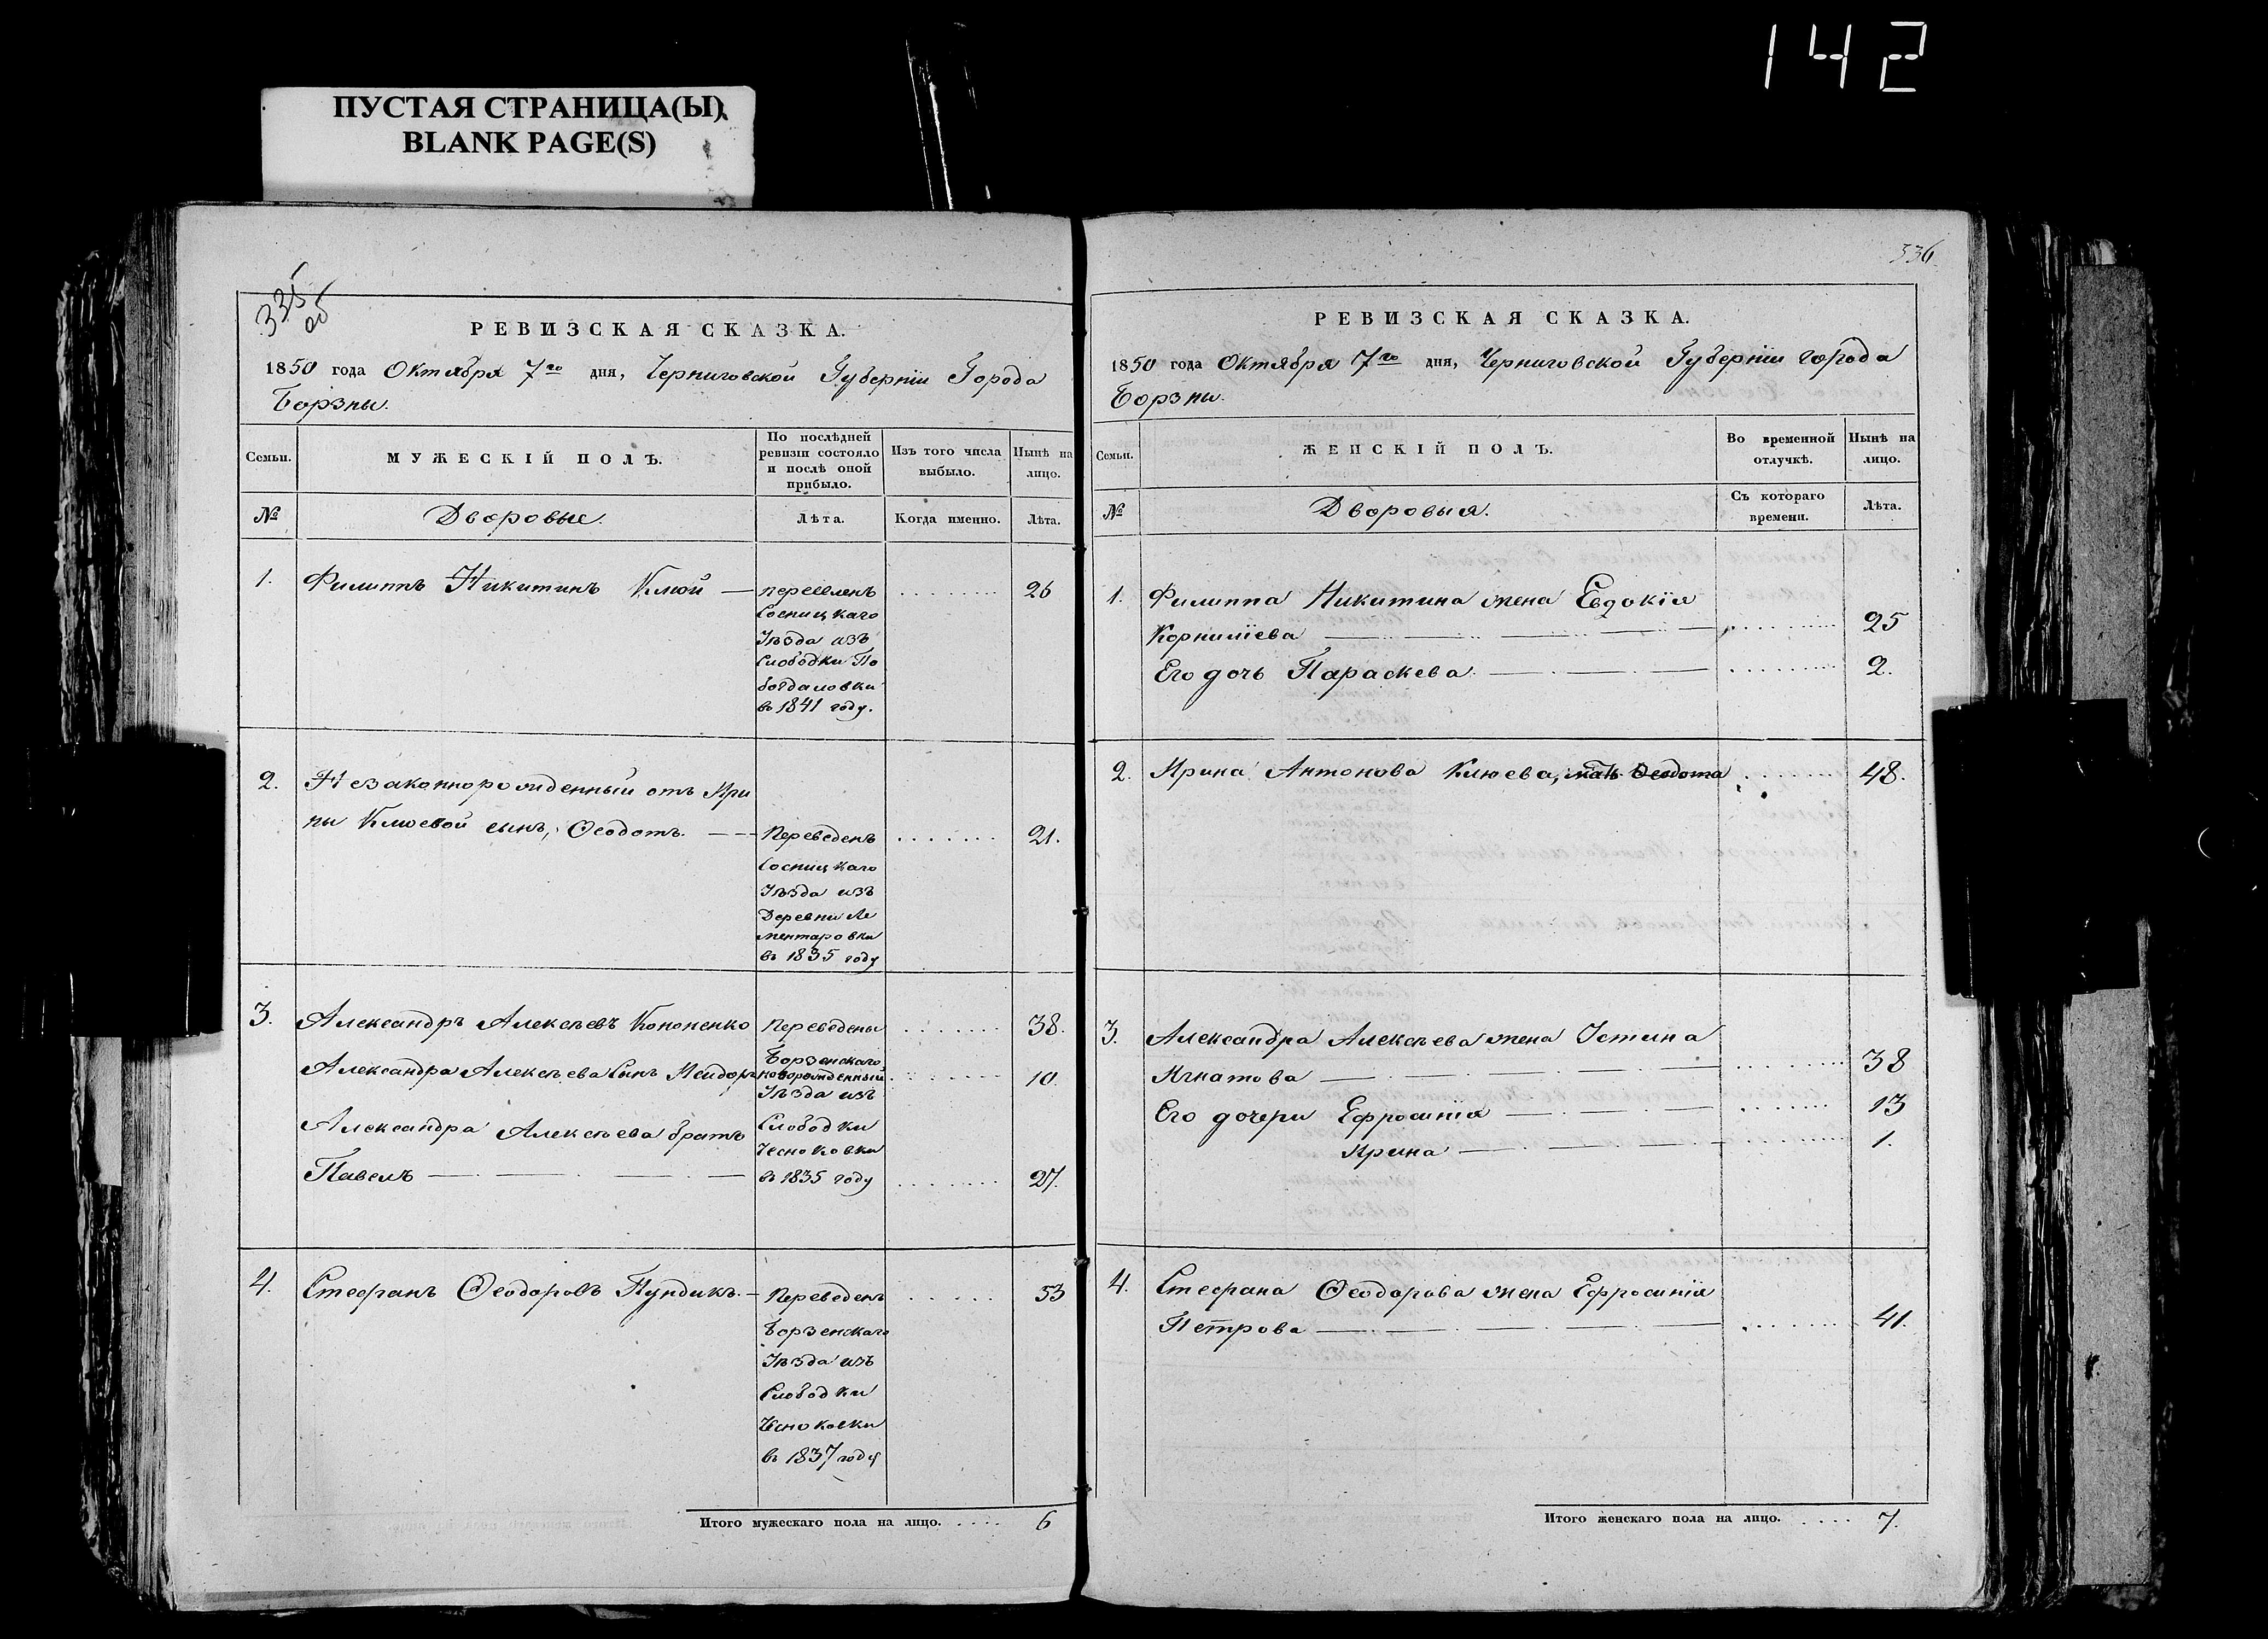 142
ПУСТАЯ СТРАНИЦА(Ы)
BLANK PAGE(S)
335
об
РЕВИЗСКАЯ СКАЗКА.
1850 года Октября 7го дня, Черниговской Губерніи Города
Борзны.
Семьи. МУЖЕСКІЙ ПОЛЪ. По послѣдней ревизіи состояло и послѣ оной прибыло. Изъ того числа выбыло. Нынѣ на лицо.
№ Дворовые. Лѣта. Когда именно. Лѣта.
1. Филиппъ Никитинъ Клюй — переселенъ . . . . . . . . . 26
Сосницкаго
Уѣзда изъ
Слободки По
богдаловки
въ 1841 году.
2. Незаконнорожденный отъ Ири
ны Клюевой сынъ, Ѳеодотъ. — — Переведенъ . . . . . . . 21.
Сосницкаго
Уѣзда изъ
Деревни Ле
ментаровки
въ 1835 году
3. Александръ Алексѣевъ Кононенко Переведены . . . . . . . 38.
Борзенскаго
Александра Алексѣева Сынъ Исидоръ новорожденный . . . . . . . 10.
Уѣзда изъ
Александра Алексѣева братъ Слободки
Чесноковки
Павелъ — — — — въ 1835 году . . . . . . . 27.
4. Стефанъ Ѳеодоровъ Пундикъ. — Переведенъ . . . . . . 53
Борзенскаго
Уѣзда изъ
Слободки
Чесноковки
въ 1837 году
Итого мужескаго пола на лицо. . . . . 6
336.
РЕВИЗСКАЯ СКАЗКА.
1850 года Октября 7го дня, Черниговской Губерніи города
Борзны.
Семьи. ЖЕНСКІЙ ПОЛЪ. Во временной отлучкѣ. Нынѣ на лицо.
№ Дворовыя. Съ котораго времени. Лѣта.
1. Филиппа Никитина жена Евдокія
Корниліева — — — — . . . . . . . . . 25
Его дочь Параскева. — — — . . . . . . . . . 2.
2. Ирина Антонова Клюева, мать Ѳеодота . . . . . . . . 48.
3. Александра Алексѣева жена Устина
Игнатова — — — — . . . . . . . . . 38
Его дочери Ефросинія — — — . . . . . . . . 13
Ирина — — — . . . . . . . . . 1.
4. Стефана Ѳеодорова жена Ефросинія
Петрова — — — — . . . . . . . . 41.
Итого женскаго пола на лицо. . . . . 7.